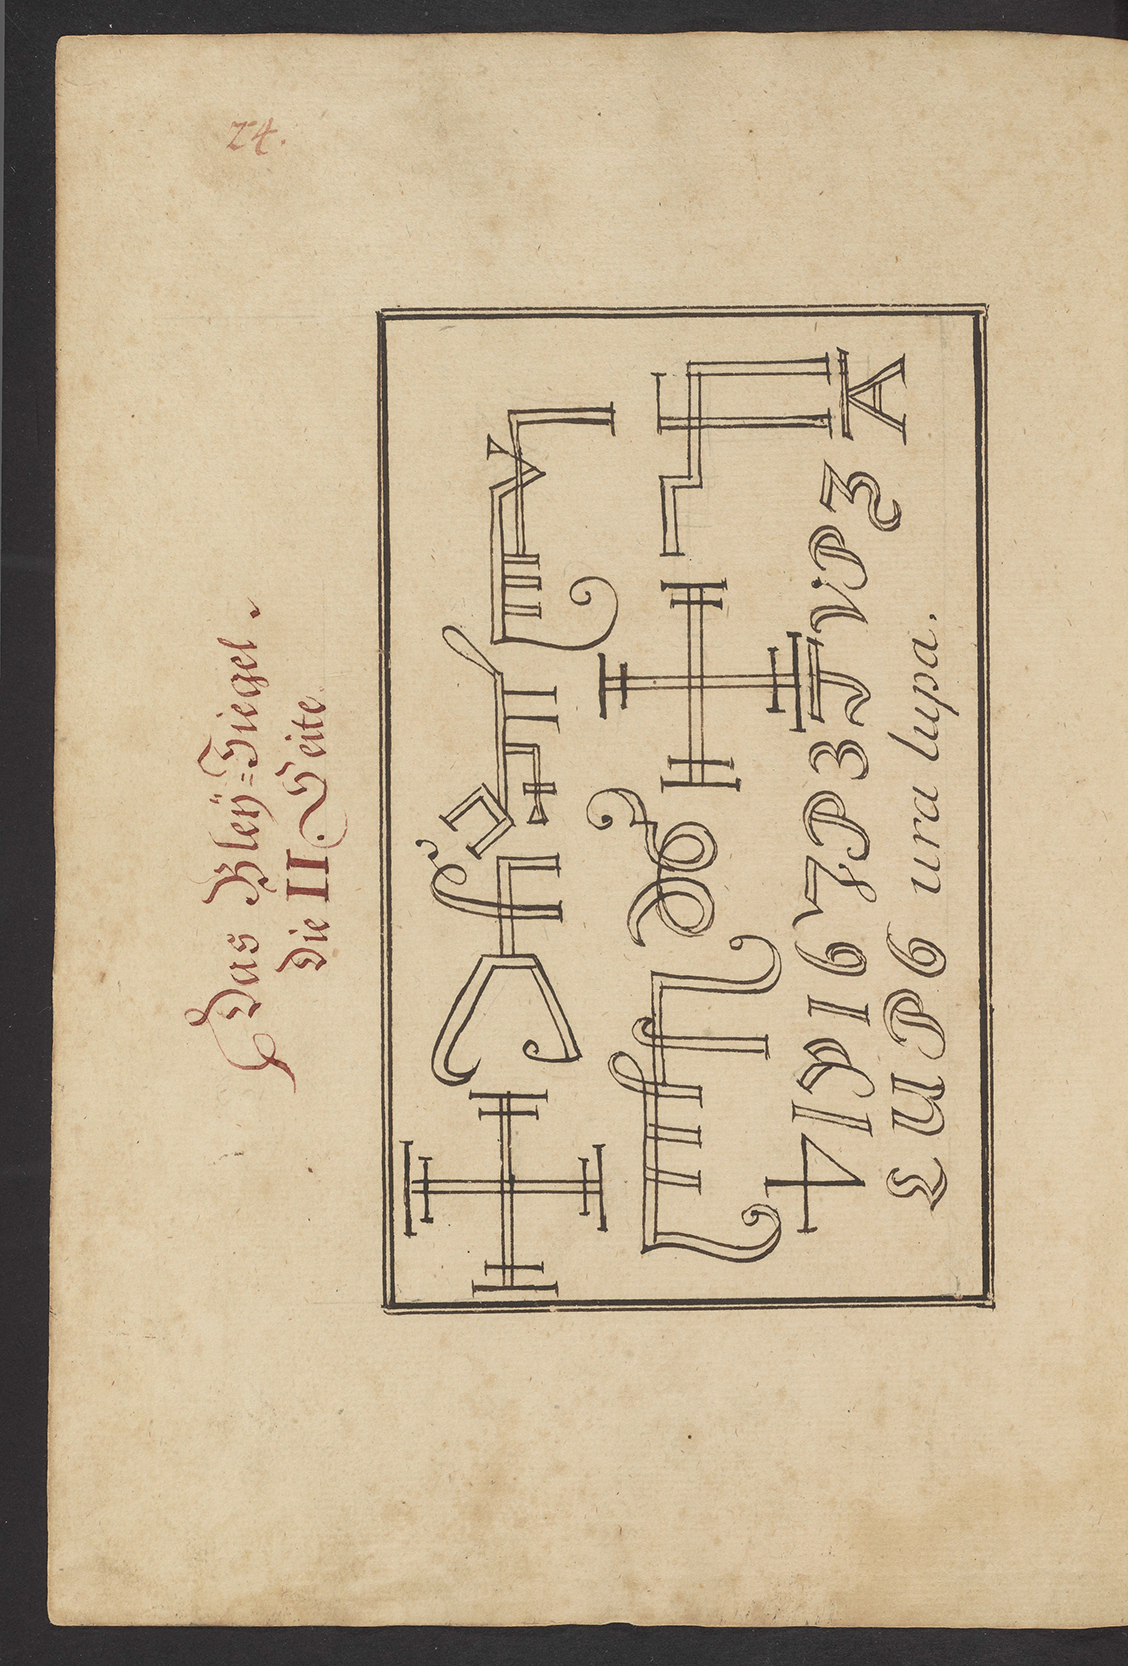 24.
Das Bleÿ=Siegel.
Die II. Seite
4 I P I 6 7 P 3 T V P 3 A
L U P 6 ura lupa.